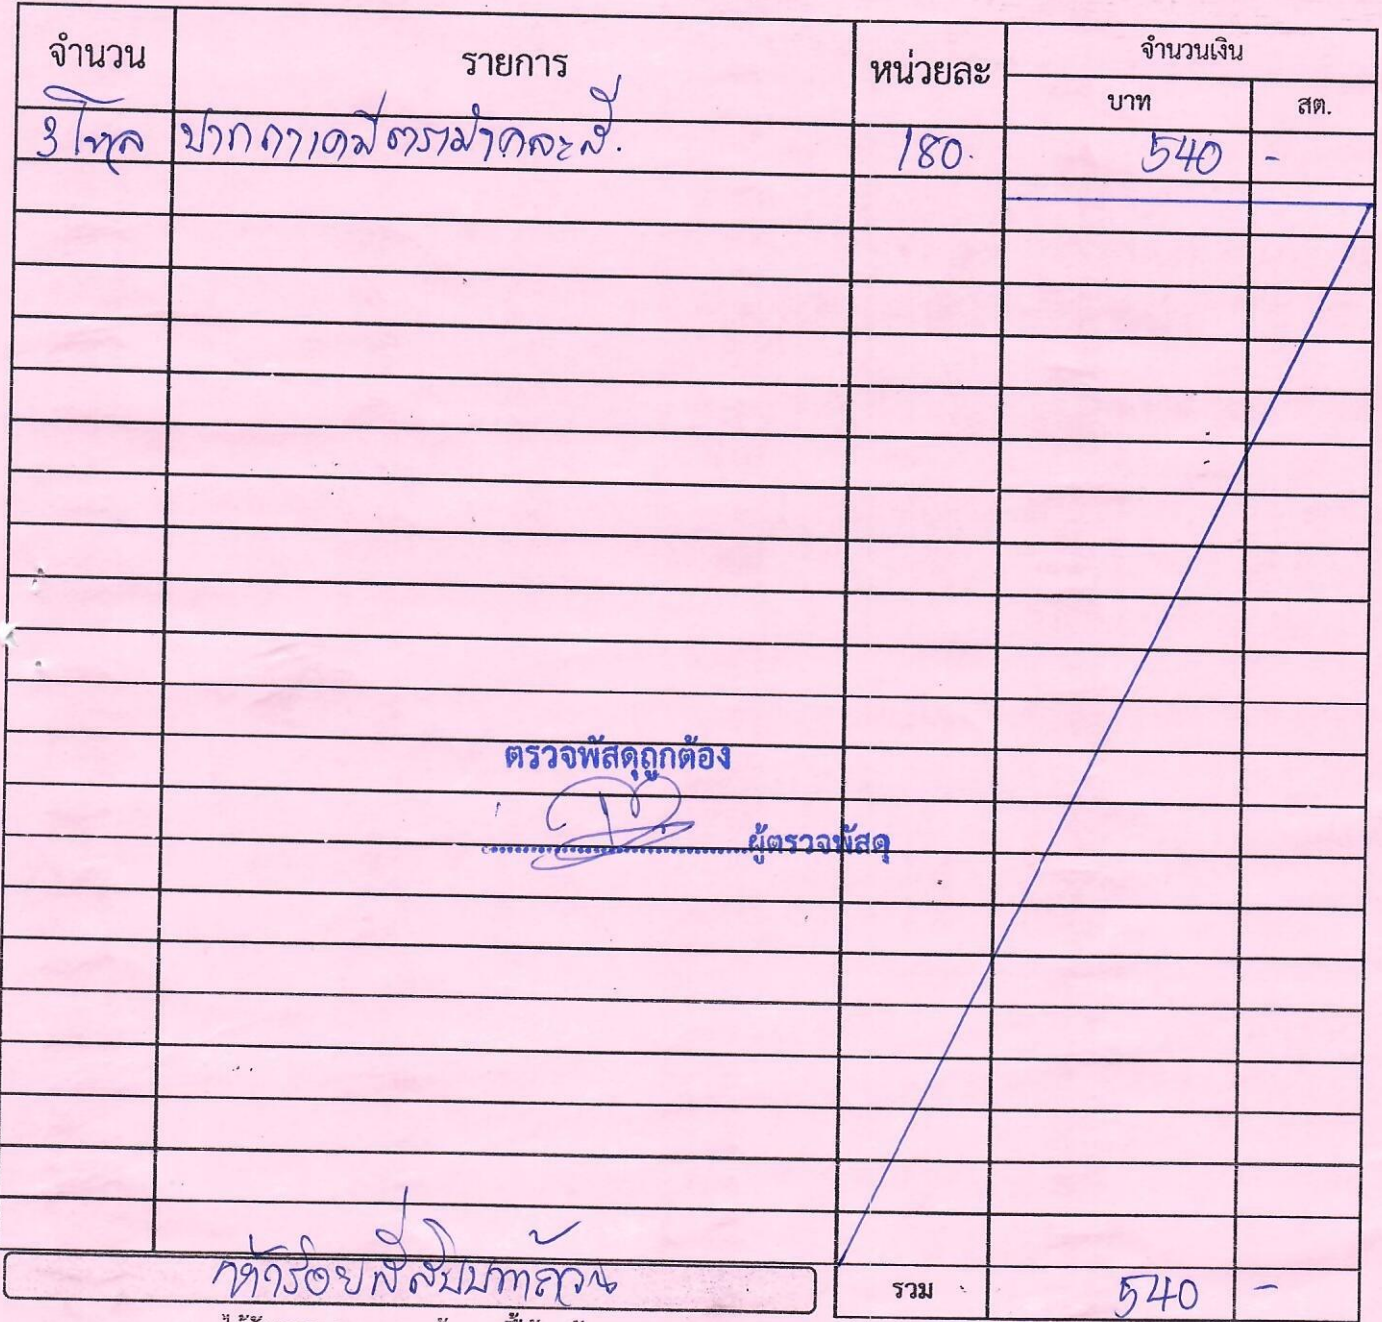 จำนวน รายการ หน่วยละ จำนวนเงิน
บาท สต.
3 โหล ปากกาเคมีตราม้าคละสี. 180. 540 -
ตรวจพัสดุถูกต้อง
ผู้ตรวจพัสดุ
ห้าร้อยสี่สิบบาทถ้วน รวม 540 -